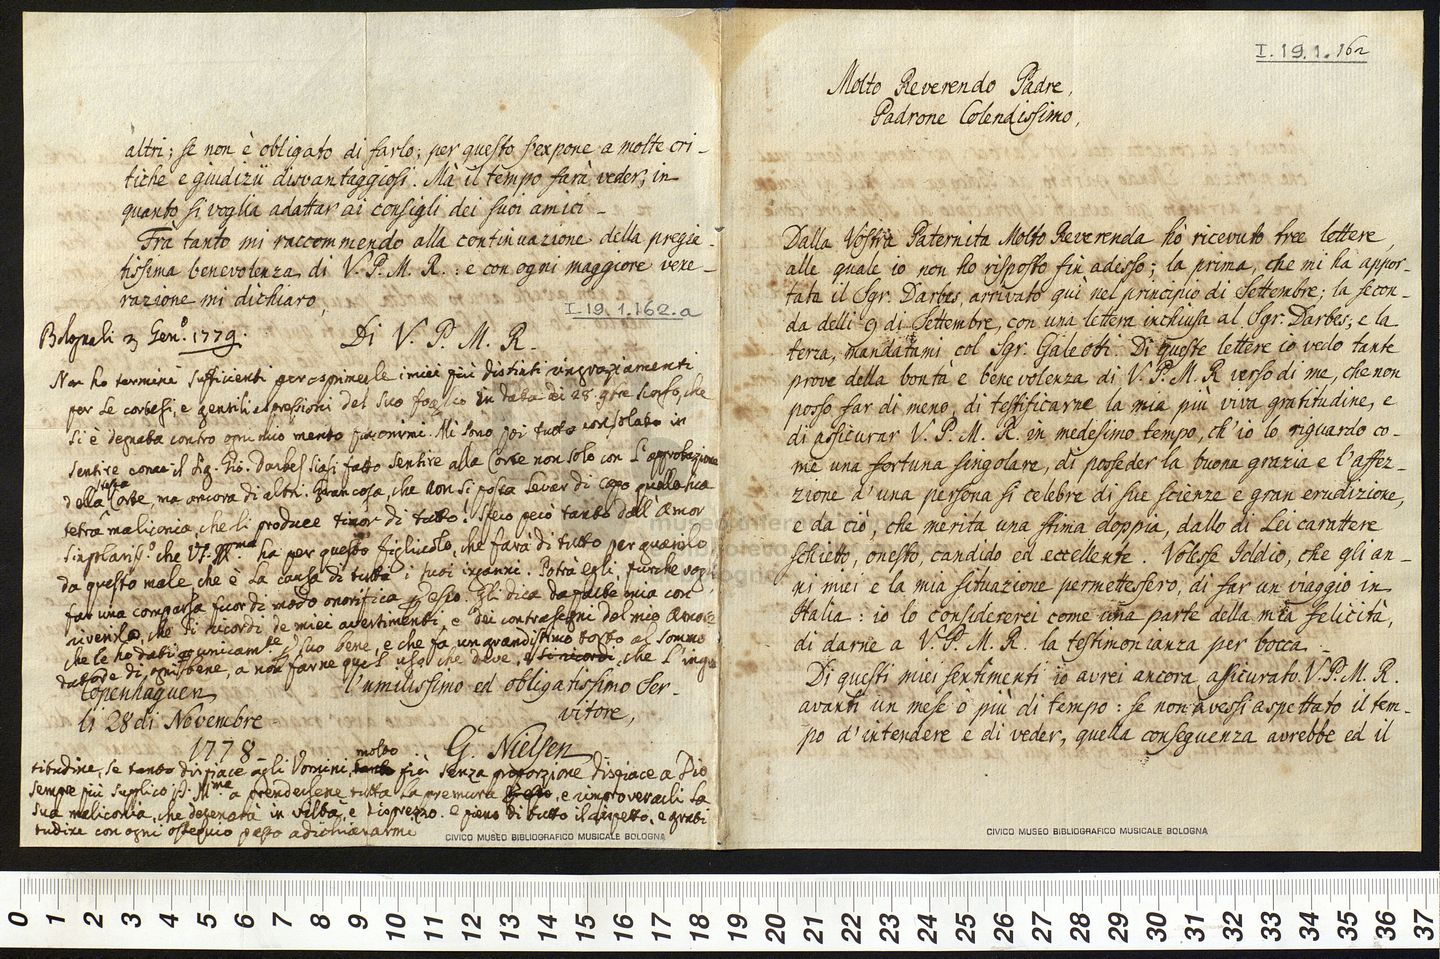 I.19.1.162
Molto Reverendo Padre,
Padrone Colendissimo,
Dalla Vostra Paternita Molto Reverenda hò ricevuto tree lettere,
alle quale io non ho risposto fin adesso; la prima, che mi ha appor-
tata il Sgr. Darbes, arrivato quì nel principio di Settembre; la secon-
da delli 9 di Settembre, con una lettera inchiusa al Sgr. Darbes, e la
terza, mandatami col Sgr. Galeotti. Di queste lettere io vedo tante
prove della bontà e benevolenza di V. P. M. R verso di me, che non
posso far di meno, di testificarne la mia più viva gratitudine, e
di assicurar V. P. M. R. in medesimo tempo, ch'io lo riguardo co-
me una fortuna singolare, di posseder la buona grazia e l'affez-
zione d'una persona si celebre di sue scienze e gran erudizione,
e da ciò, che merita una stima doppia, dallo di Lei carattere
schieto, onesto, candido ed eccellente. Volesse Iddio, che gli an-
ni miei e la mia situazione permettessero, di far un viaggio in
Italia: io lo considererei come una parte della mia felicità,
di darne a V. P. M. R. la testimonianza per bocca.
Di questi miei sentimenti io avrei ancora assicurato V. P. M. R.
avanti un mese ò più di tempo: se non avessi aspettato il tem-
po d'intendere e di veder, quella conseguenza avrebbe ed il
CIVICO MUSEO BIBLIOGRAFICO MUSICALE BOLOGNA
altri; se non è obligato di farlo; per questo s'expone a molte cri-
tiche e giudizii disvantaggiosi. Mà il tempo farà veder, in
quanto si voglia adattar ai consigli dei suoi amici.
Fra tanto mi raccommendo alla continuazione della pregia-
tissima benevolenza di V. P. M. R.: e con ogni maggiore vene-
razione mi dichiaro,
I.19.1.162.a
Di V. P. M. R.
Bologna li 3 Gen.º 1779.
Non ho termini sufficienti per esprimerle i miei più distinti ringraziamenti
per le cortesi, e gentili espressioni del suo foglio in data dei 28 9bre scorso, che
si è degnata contro ogni mio merito favorirmi. Mi sono poi tutto consolato in
sentire come il Sig. Gio. Darbes siasi fatto sentire alla Corte non solo con l'approbazione
della stessa Corte, ma ancora di altri. Gran cosa, che non si possa levar di capo quella sua
tetra malinconia, che li produce timor di tutto!
singolariss.º che
ha per questo figliuolo, che farà di tutto per guarirlo
da questo male, che è la causa di tutti i suoi inganni. Potrà egli, purche vogl
far una comparsa fuor di modo onorifica
Gli dica da parte mia con
che si ricordi de miei avertimenti, e dei contrasegni del mio Amore
che le ho dati unicam.te
suo bene, e che fa un grandissimo torto al sommo
datore di ogni bene, a non farne quel uso che deve,
che l'ingra
Copenhaguen
li 28 di Novembre
1778
l'umilissimo ed obligatissimo Ser-
vitore,
G. Nielsen
titudine, se tanto dispiace agli Uomini, molto più senza proporzione dispiace a Dio
sempre più supplico
a prendersene tutta la premura
e improverarli la
sua malinconia, che degenera in viltà, e disprezzo. e pieno di tutto il rispetto, e grati
tudine con ogni ossequio passo a dichiararmi
CIVICO MUSEO BIBLIOGRAFICO MUSICALE BOLOGNA
0 1 2 3 4 5 6 7 8 9 10 11 12 13 14 15 16 17 18 19 20 21 22 23 24 25 26 27 28 29 30 31 32 33 34 35 36 37